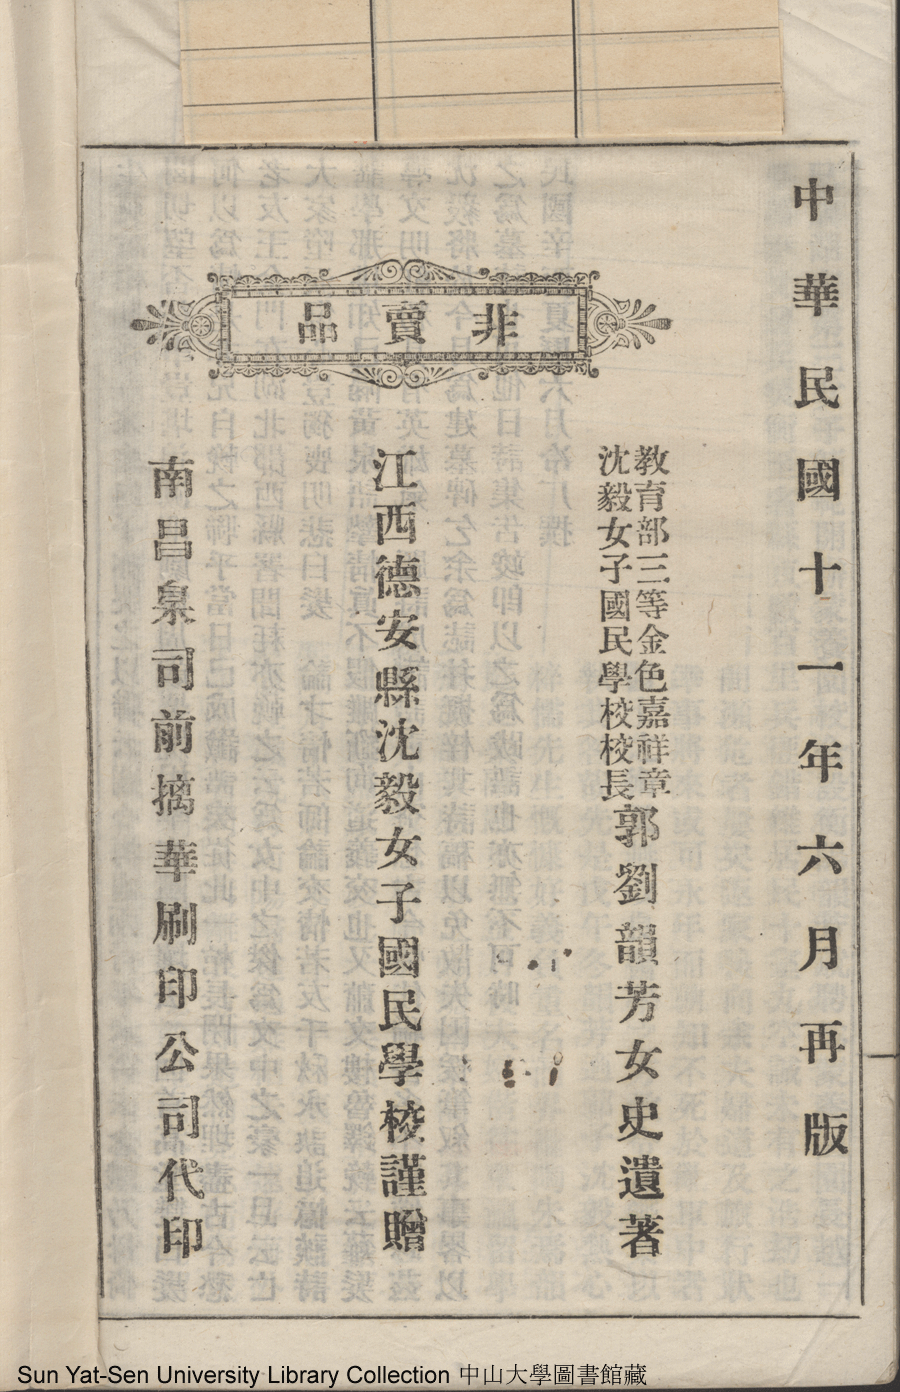 中華民國十一年六月再版
非賣品
教育部三等金色嘉祥章
沈毅女子國民學校校長
郭劉韻芳女史遺著
江西德安縣沈毅女子國民學校謹贈
南昌臬司前摛華刷印公司代印
Sun Yat-Sen University Library Collection 中山大學圖書館藏